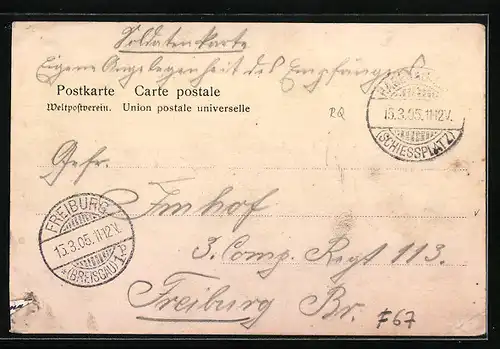 Soldatenkarte
Eigene Angelegenheit des Empfängers
Postkarte Carte postale
Weltpostverein. Union postale universelle
15.3.05.11-12V.
(SCHIESSPLATZ)
RQ
Gefr.
Imhof
FREIBURG
15.3.05.11-12V.
*(BREISGAU)1P
3. Comp. Regt 113.
Freiburg Br.
F67